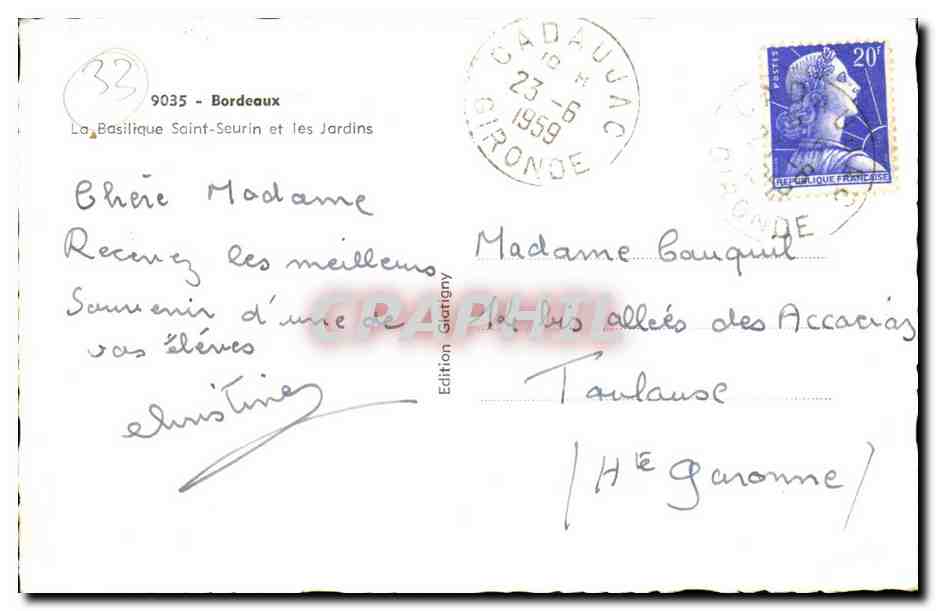 33
9035 - Bordeaux
La Basilique Saint-Seurin et les Jardins
CADAUJAC
10 H
23-6
1959
GIRONDE
POSTES
20F
REPUBLIQUE FRANÇAISE
GIRONDE
Chère Madame
Recevez les meilleurs
Souvenir d'une de
vos élèves
christine
Edition Glatigny
CPAPHIL
Madame Cauquil
bis allées des Accacias
Toulouse
(Hte Garonne)